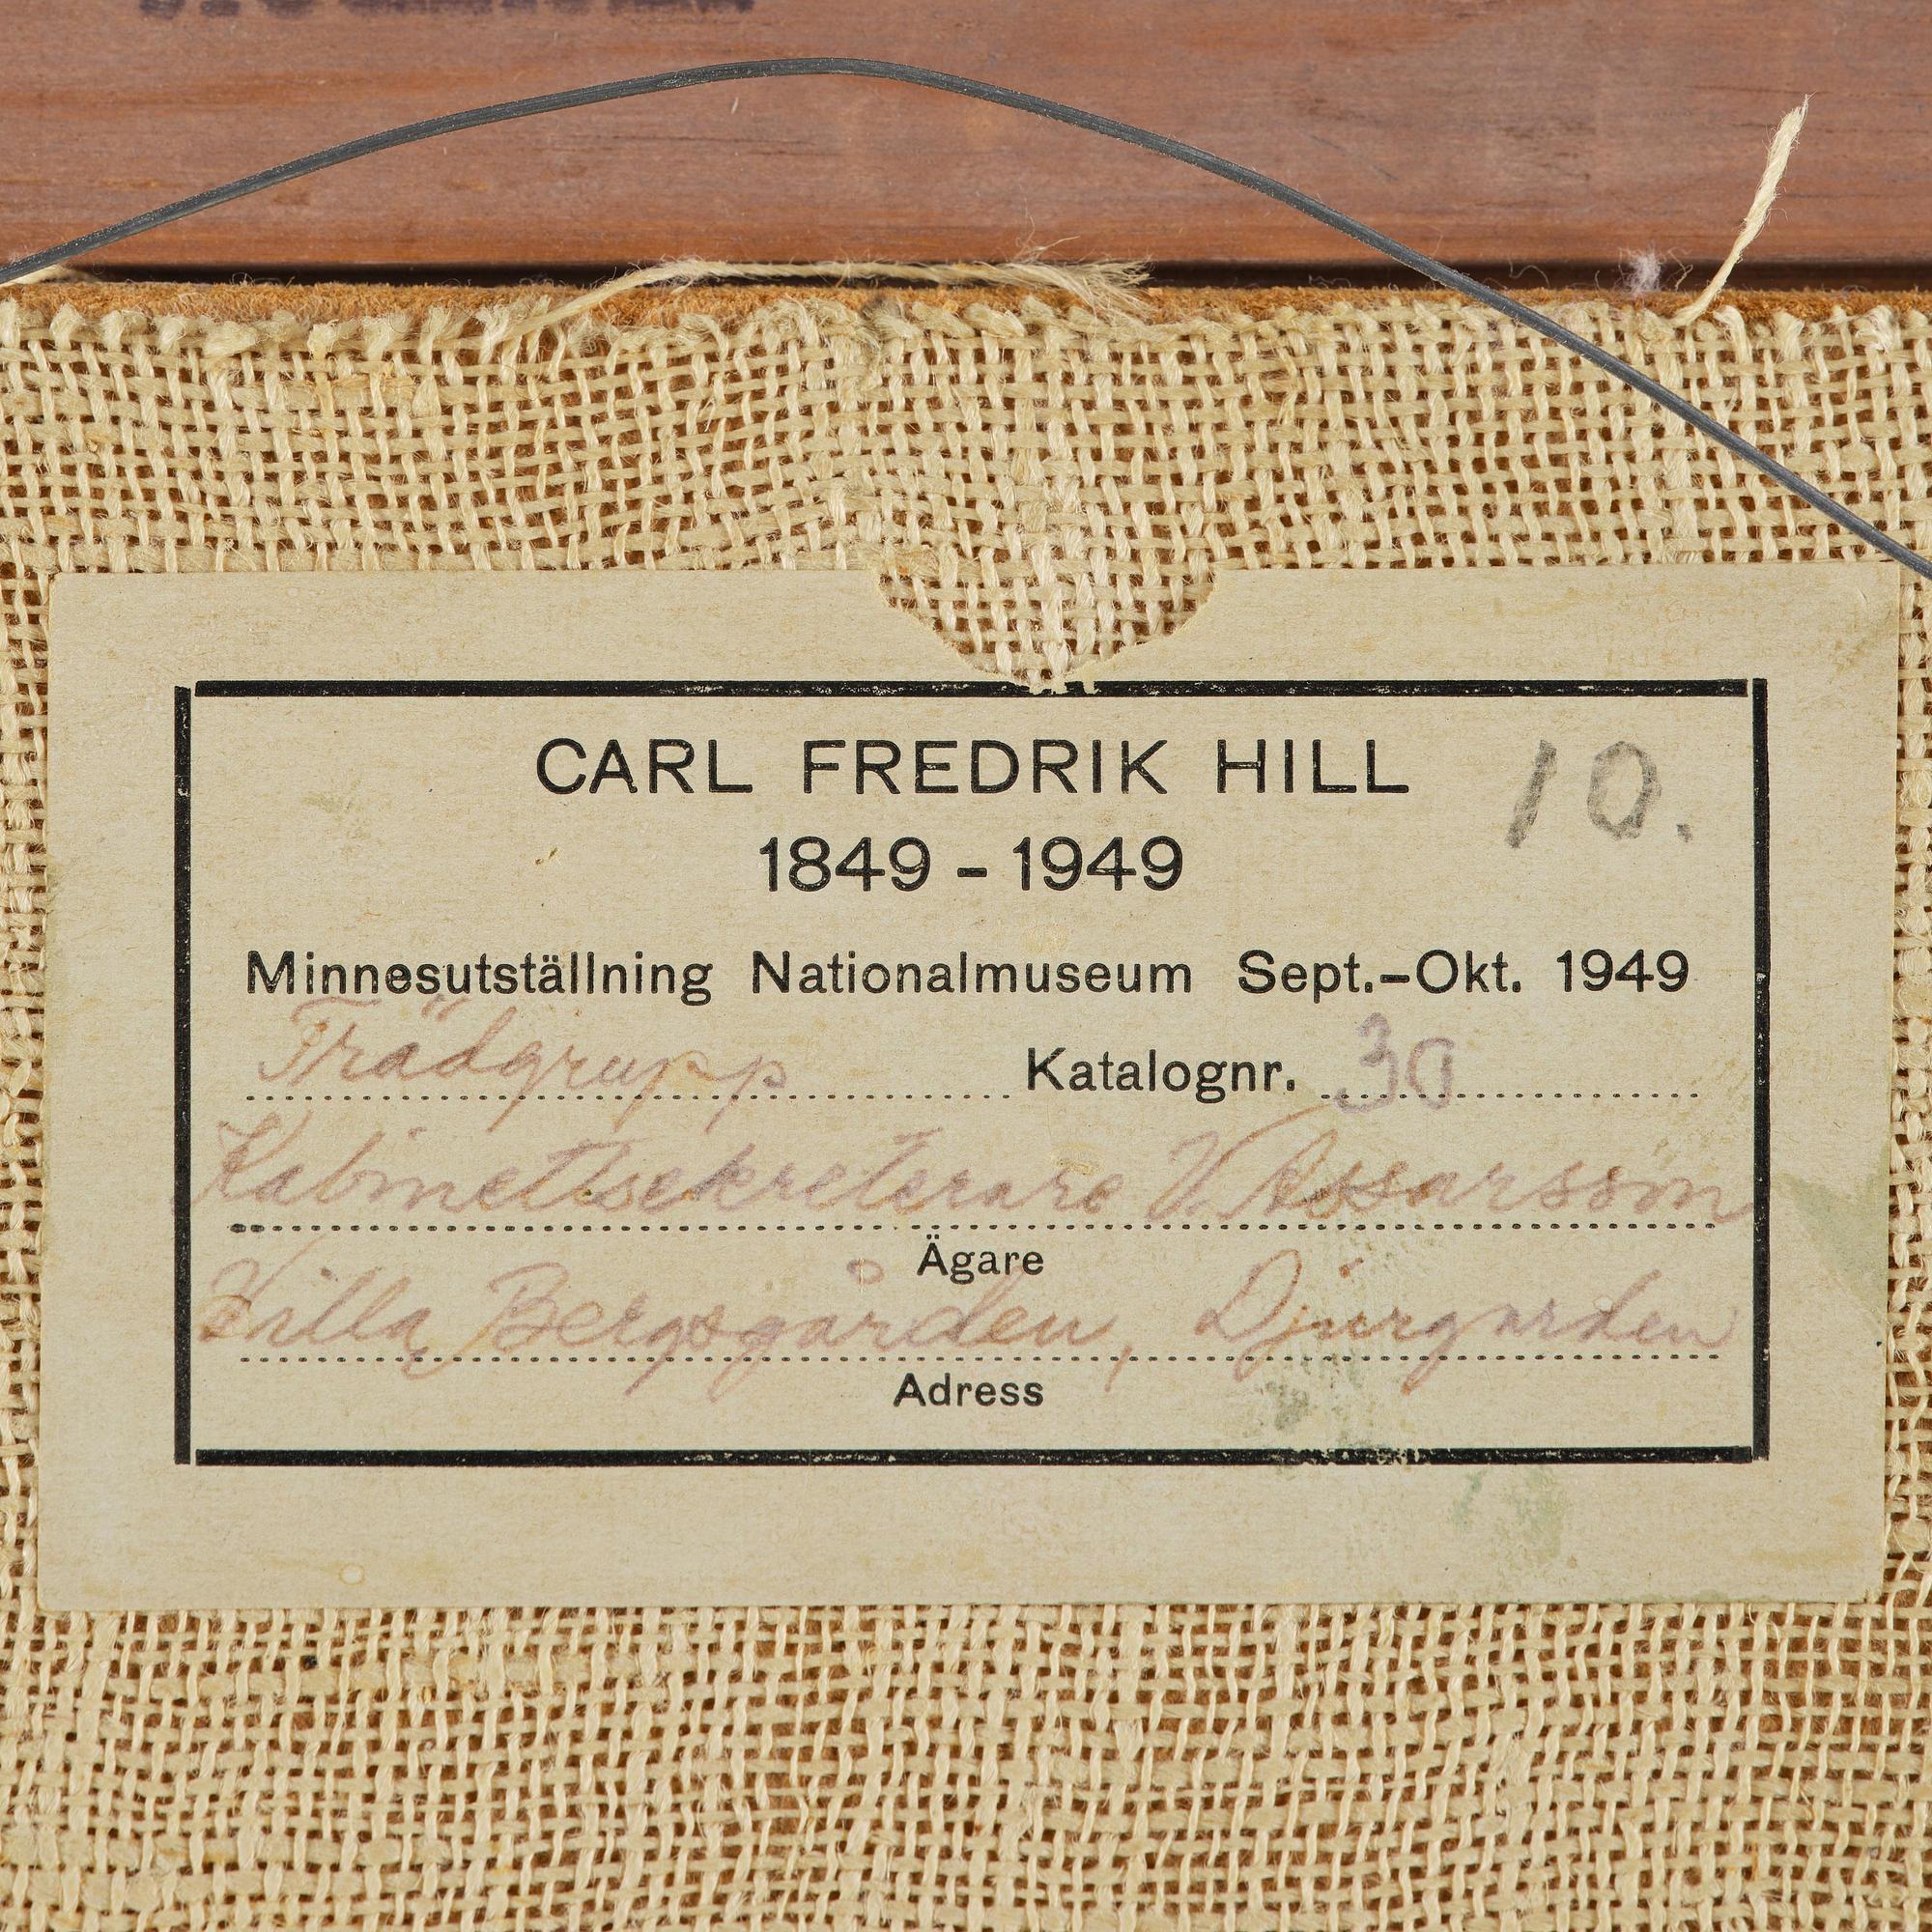 CARL FREDRIK HILL 10.
1849 - 1949
Minnesutställning Nationalmuseum Sept.-Okt. 1949
Trädgrupp Katalognr. 30
Kabinettsekreterare V. Assarsson
Ägare
Villa Bergsgården, Djurgården
Adress